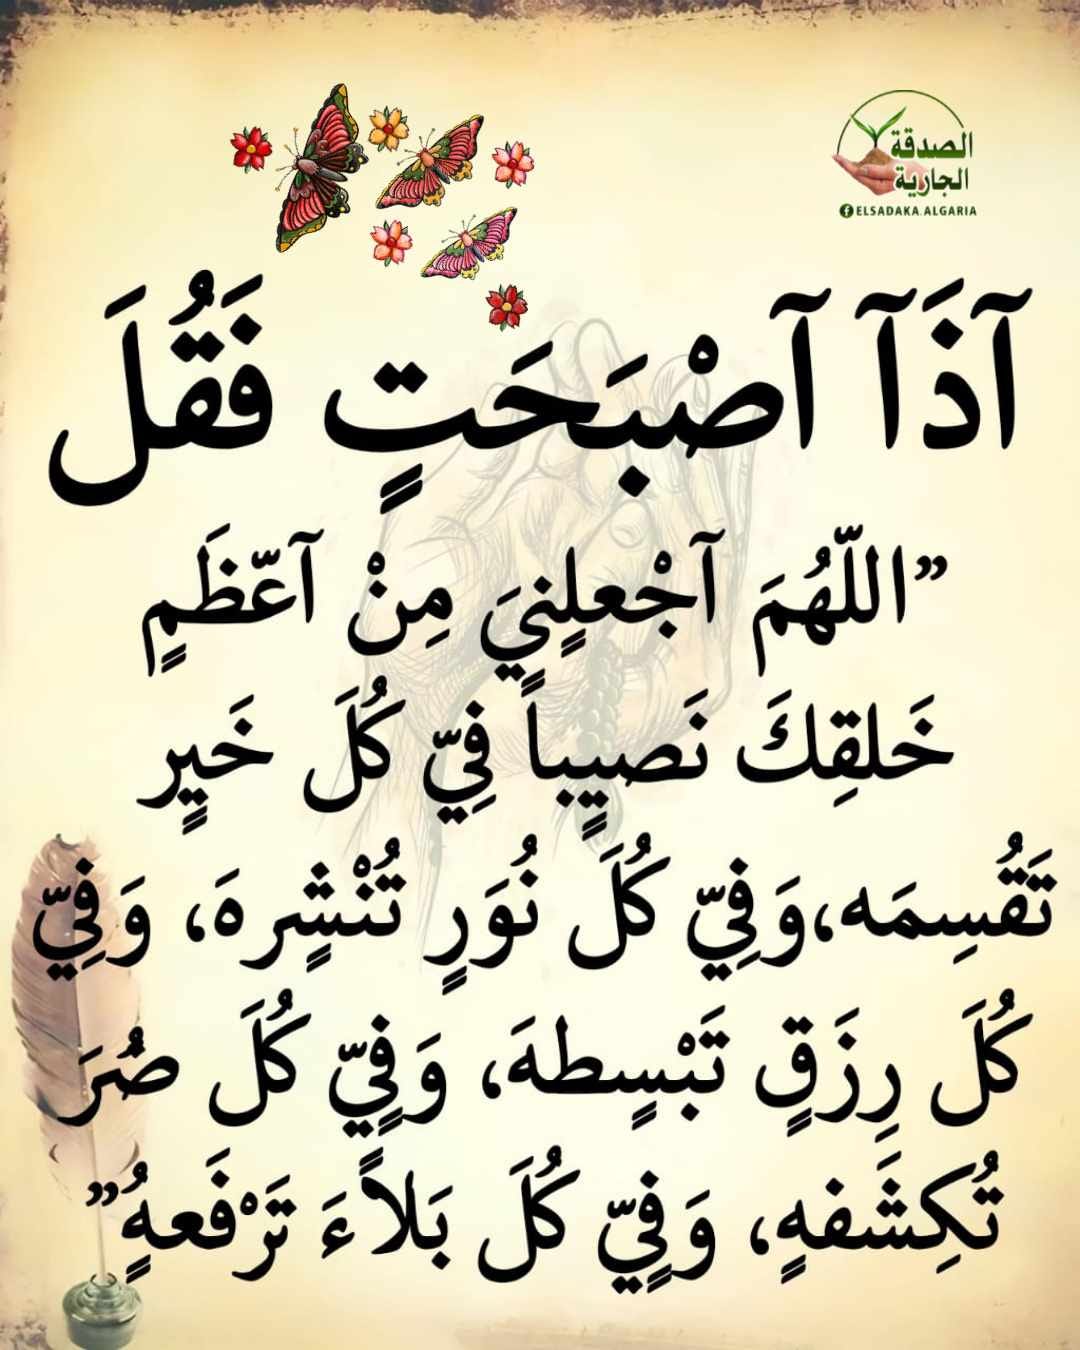 الصدقة
الجارية
ELSADAKA.ALGARIA
آذَآ آصْبَحَتٍ فَقُلَ
”اللّهُمَ آجْعلٍنيَ مِنْ آعّظَمٍ
خَلقِكَ نَصيٍباً فِيّ كُلَ خَيٍر
تَقُسِمَه،وَفِيّ كُلَ نُوَرٍ تُنْشٍرهَ، وَفِيّ
كُلَ رِزَقٍ تَبْسٍطهَ، وَفٍيّ كُلَ ضُرَ
تُكِشَفهٍ، وَفٍيّ كُلَ بَلاًءَ تَرْفَعهٍُ”